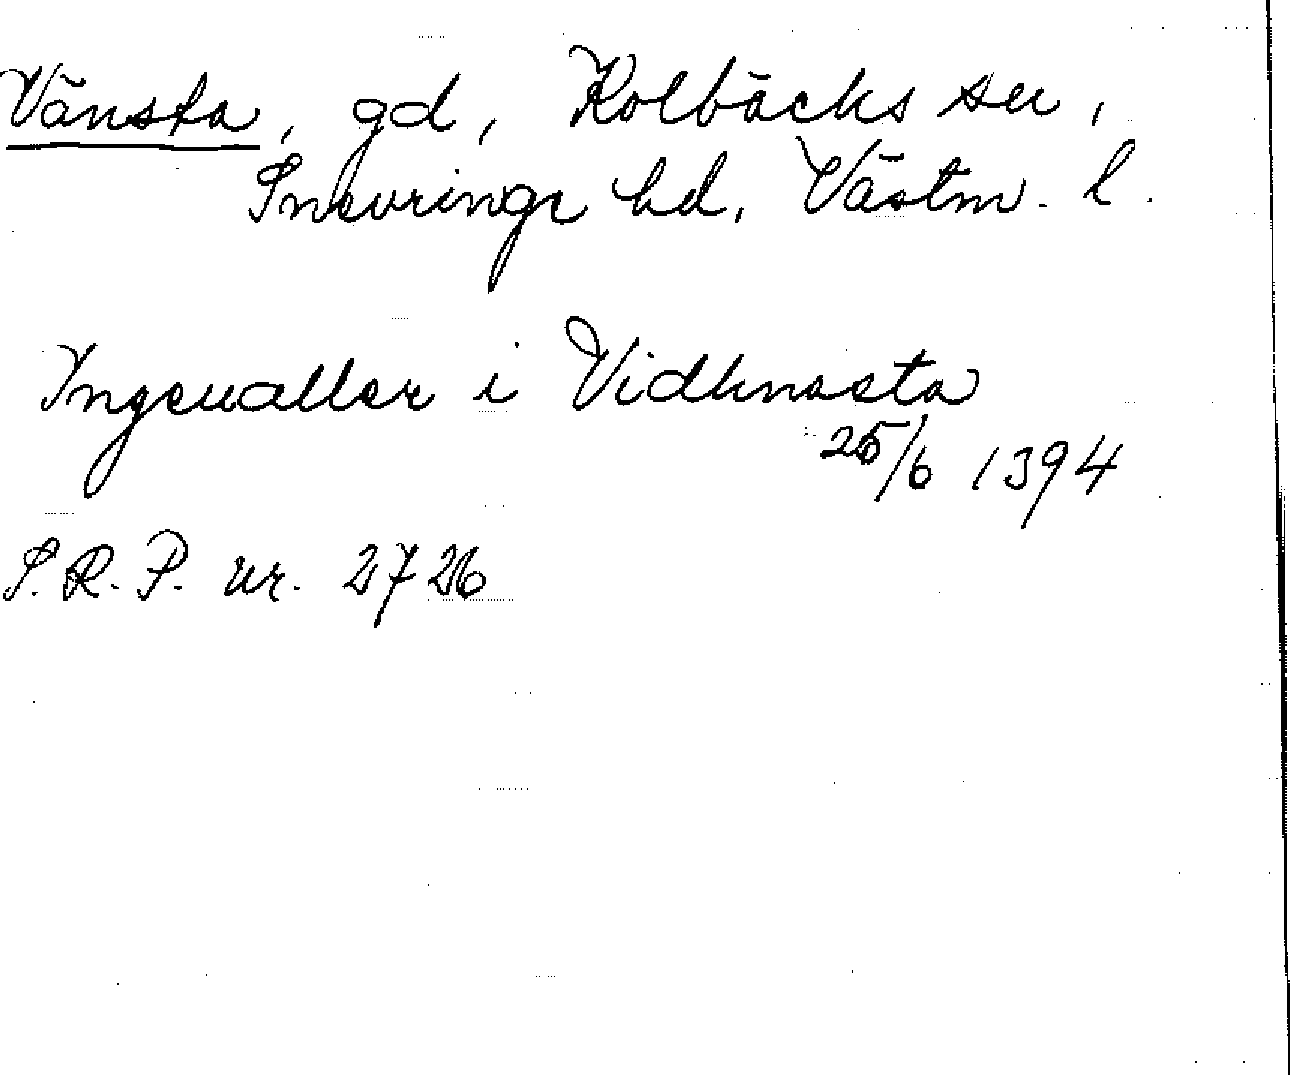 Vänsta, gd, Kolbäcks sn,
Snevringe hd, Västm. l.
Ingeualler i Vidhnasta
25/6 1394
S.R.P. nr. 2726